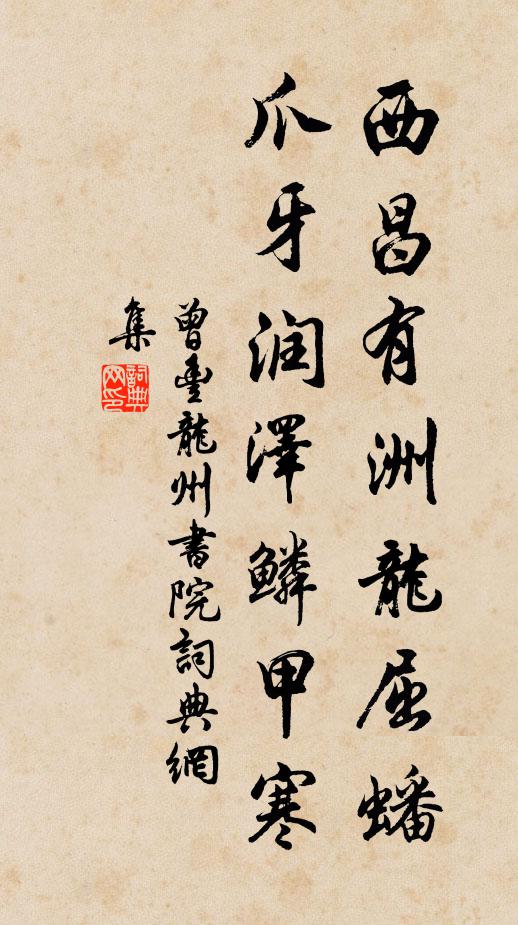 西昌有洲龍屈蟠
爪牙润澤鳞甲寒
曾豊龍州書院詞典網
集
詞典
网印